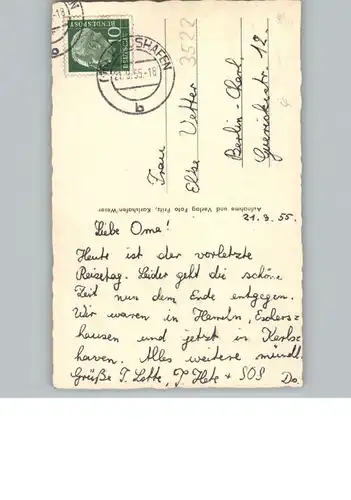 3522
DEUTSCHE
BUNDESPOST
10
21.9.55-18
b
Frau
Elbe Vetter
Berlin-Charl.
Guerickestr. 12.
Aufnahme und Verlag Foto Fritz, Karlshafen-Weser
21.9.55.
Liebe Oma!
Heute ist der vorletzte
Reisetag. Leider geht die schöne
Zeit nun dem Ende entgegen.
Wir waren in Hameln, Eschers-
hausen und jetzt in Karls-
haven. Alles weitere mündl.
Grüße T. Lotte, + SOS Do.